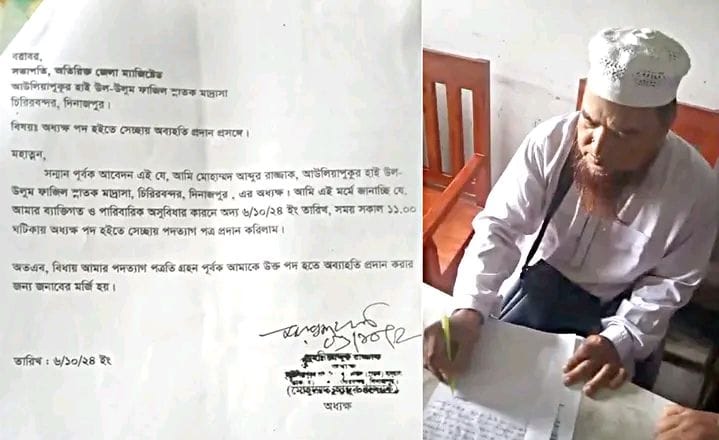 বরাবর,
সভাপতি, অতিরিক্ত জেলা ম্যাজিষ্টেড
আউলিয়াপুকুর হাই উল-উলুম ফাজিল স্নাতক মাদ্রাসা
চিরিরবন্দর, দিনাজপুর।
বিষয়ঃ অধ্যক্ষ পদ হইতে সেচ্ছায় অবাহতি প্রদান প্রসঙ্গে।
মহাত্নন,
সন্মান পূর্বক আবেদন এই যে, আমি মোহাম্মদ আব্দুর রাজ্জাক, আউলিয়াপুকুর হাই উল-
উলুম ফাজিল স্নাতক মাদ্রাসা, চিরিরবন্দর, দিনাজপুর , এর অধ্যক্ষ। আমি এই মর্মে জানাচ্ছি যে,
আমার ব্যাক্তিগত ও পারিবারিক অসুবিধার কারনে অদ্য ৬/১০/২৪ ইং তারিখ, সময় সকাল ১১.০০
ঘটিকায় অধ্যক্ষ পদ হইতে সেচ্ছায় পদত্যাগ পত্র প্রদান করিলাম।
অতএব, বিধায় আমার পদত্যাগ পত্রটি গ্রহন পূর্বক আমাকে উক্ত পদ হতে অব্যাহতি প্রদান করার
জন্য জনাবের মর্জি হয়।
তারিখ : ৬/১০/২৪ ইং
অধ্যক্ষ